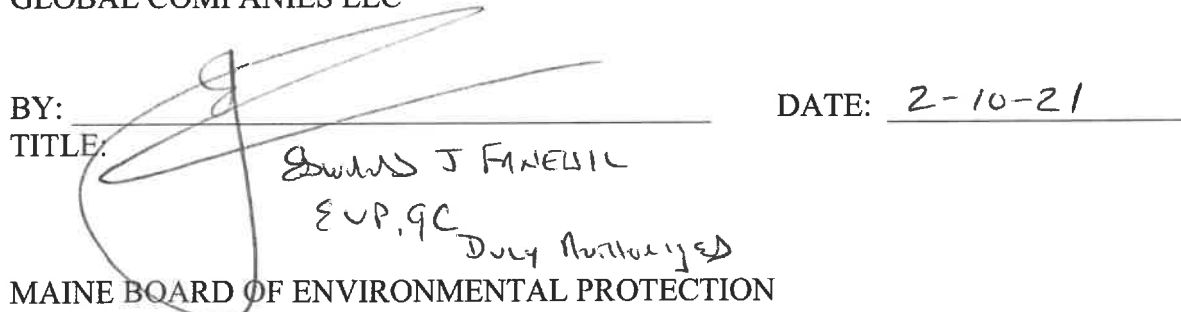 GLOBAL COMPANIES LLC
BY: DATE: 2-10-21
TITLE:
J FANEUIL
EVP, GC
Duly Authorized
MAINE BOARD OF ENVIRONMENTAL PROTECTION